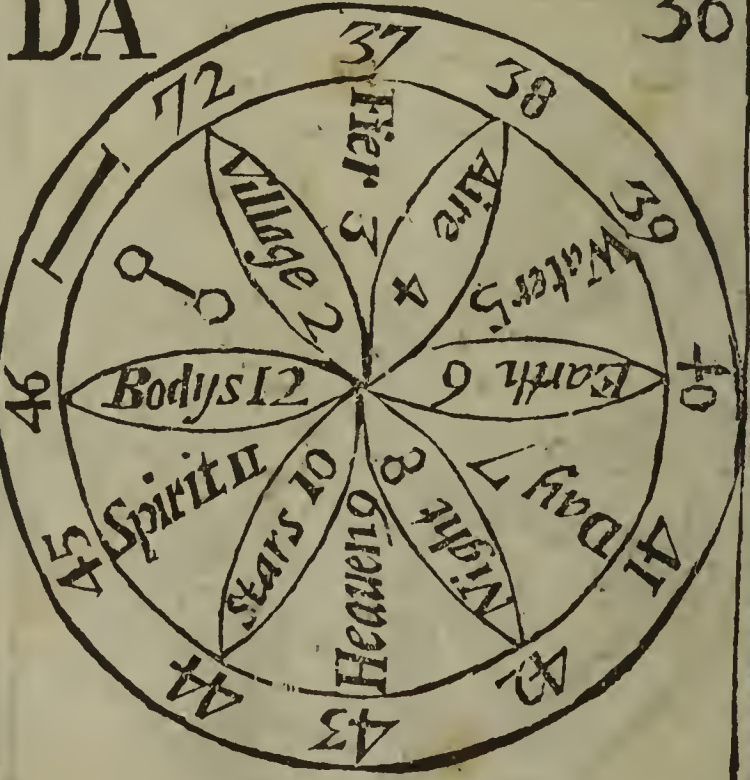 DA
36
72
37
38
39
40
41
42
43
44
45
46
Village 2
Fier 3
Aire 4
Water 5
Earth 6
Day 7
Night 8
Heaven 9
Stars 10
Spirit 11
Bodys 12